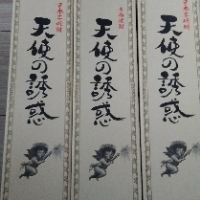 天使の誘惑
本格焼酎
天使の誘惑
天使の誘惑